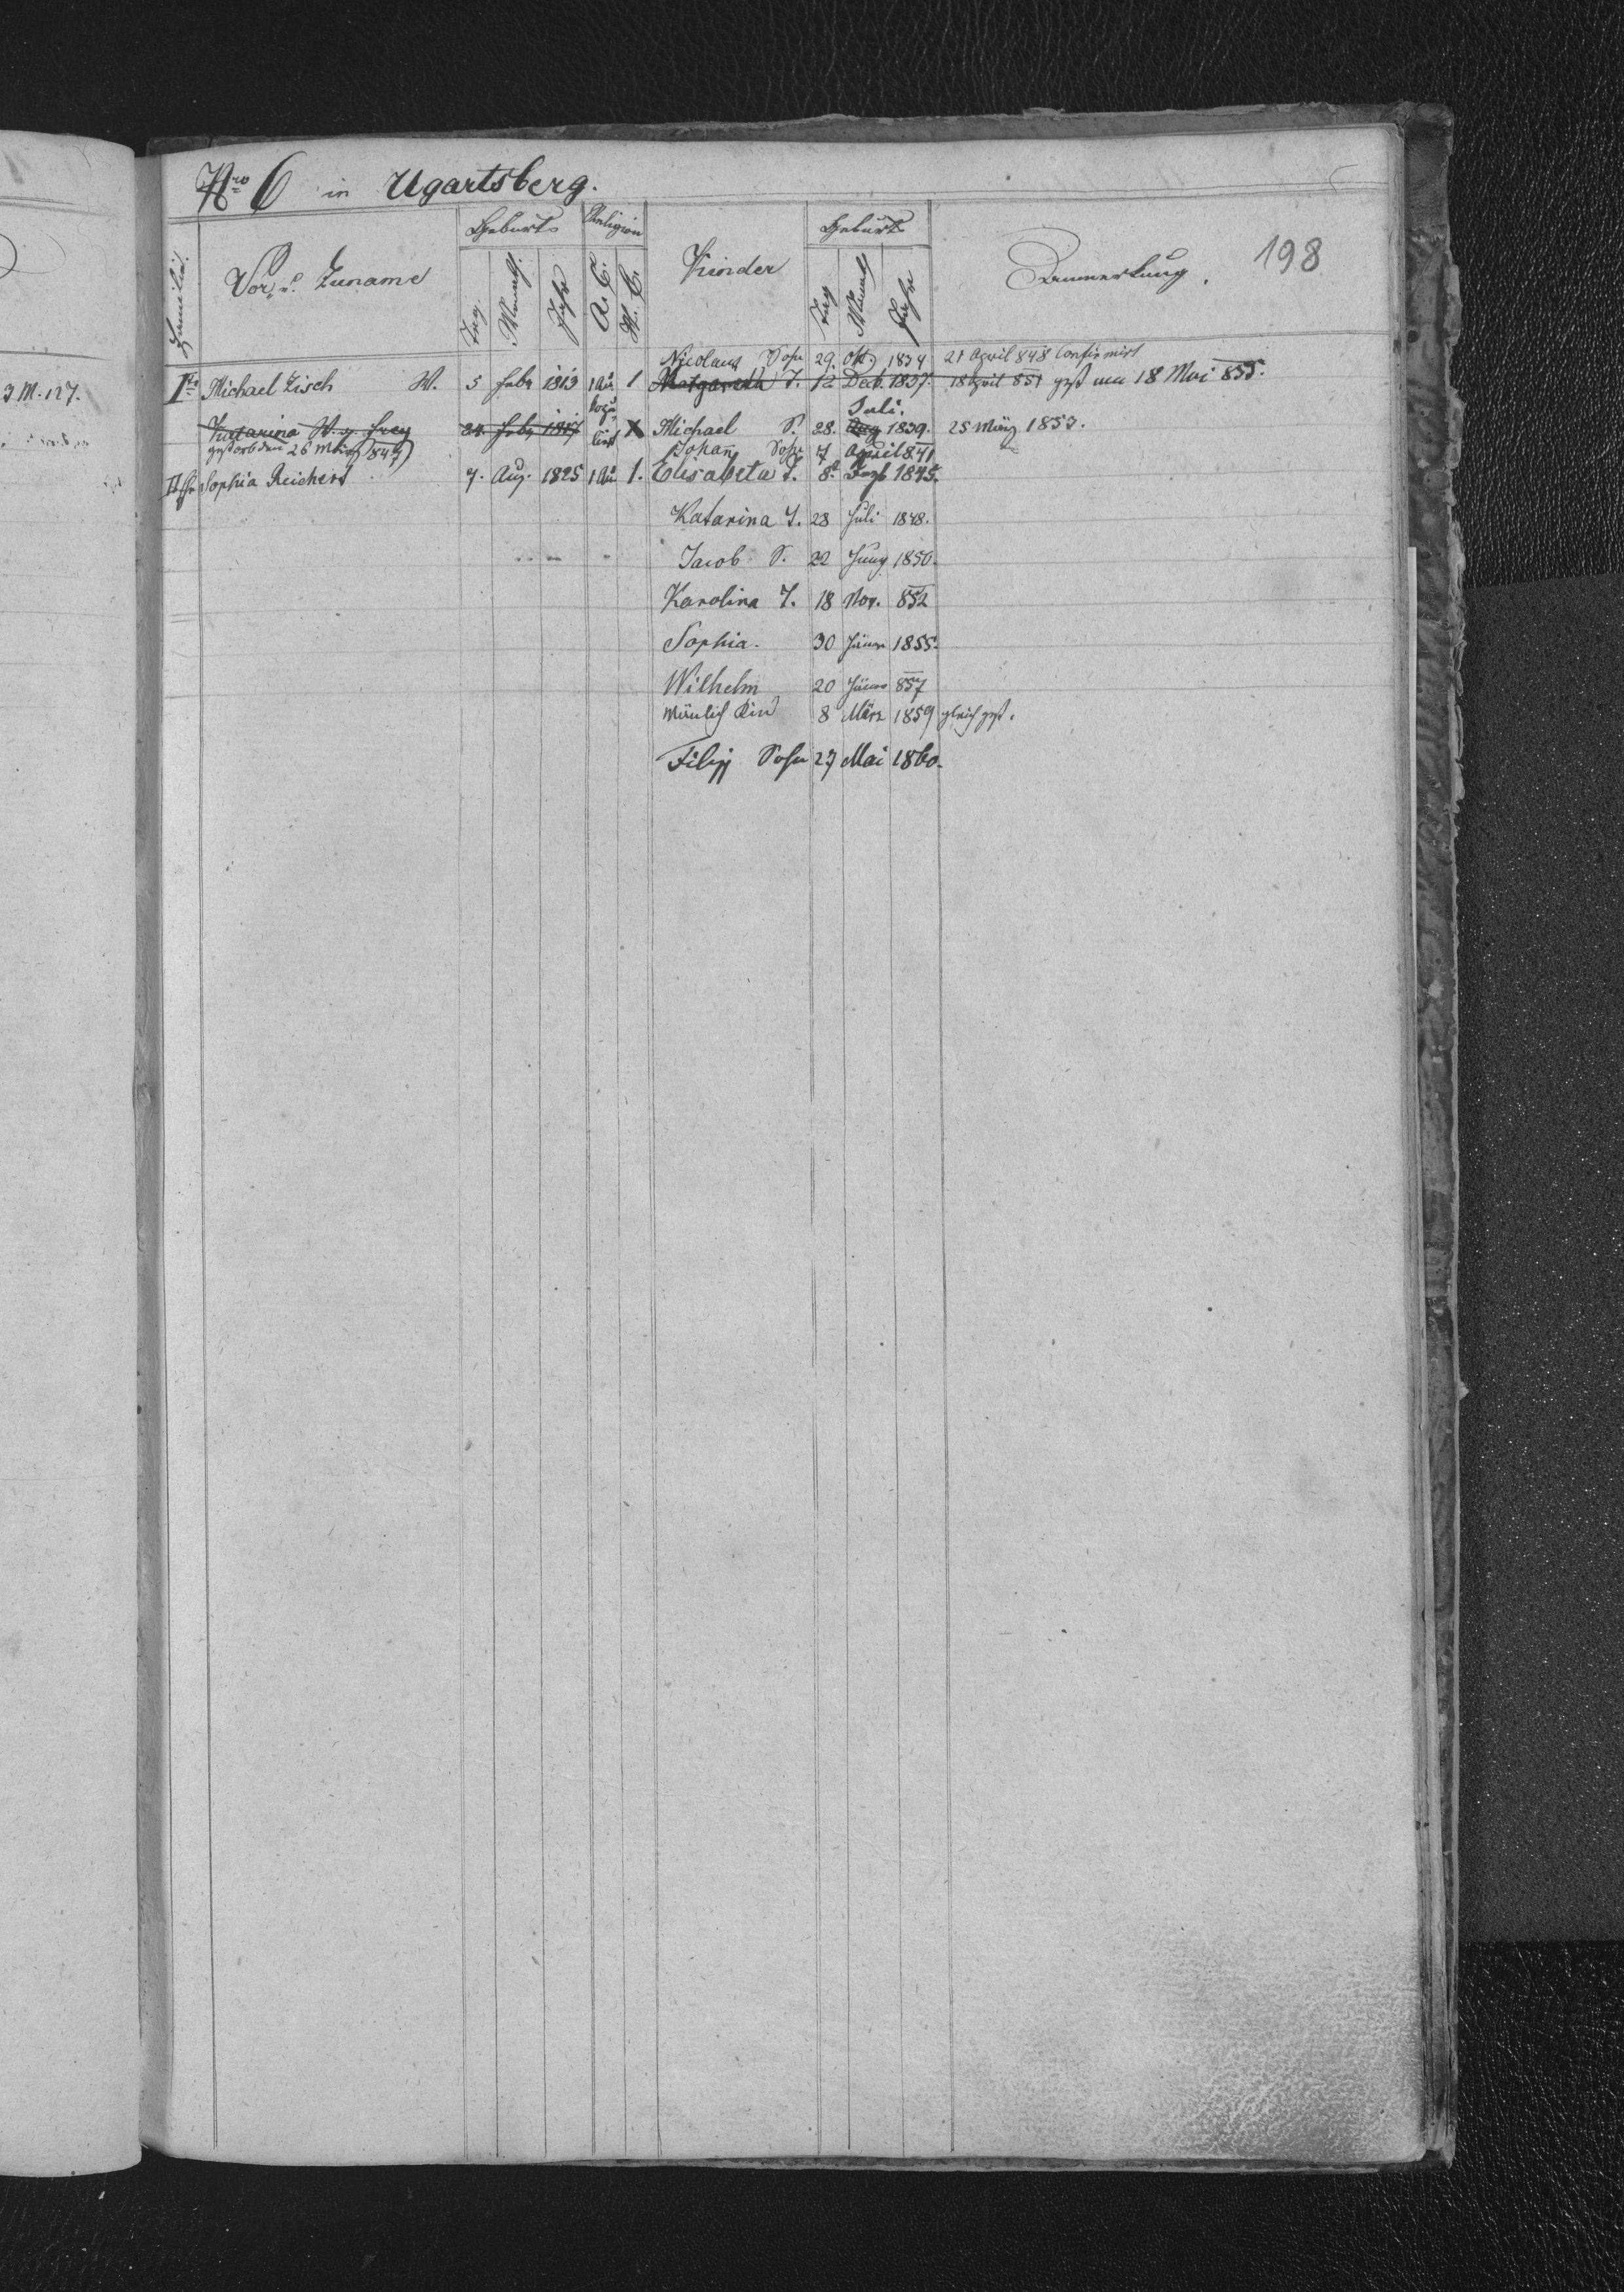 3 M. 127.
Nro 6 in Ugartsberg.
198
Familie. Vor u. Zuname Geburts Religion Kinder Geburts Anmerkung.
Tag Monat Jahr A. C. H. C. Tag Monat Jahr
Nicolaus Sohn 29. Okt. 1834 21 April 848 Confirmirt
I te Michael Zisch W. 5 Febr 1813 1 1 Margareth T. 12 Dec. 1837. 18 April 851 gest am 18 Mai 855.
Juli.
Katarina W. g. Frey 24. Febr 1817 X Michael S. 28. Aug 1839. 25 März 1853.
gestorb den 26 März 847 Johan Sohn 7 April 841
II Fr Sophia Reichert 7. Aug. 1825 1 1. Elisabeta T. 8t 1845.
Katarina T. 28 Juli 1848.
Jacob S. 22 Juny 1850.
Karolina T. 18 Nov. 852
Sophia. 30 Jäner 1855.
Wilhelm 20 Jäner 857
Mänlich Kind 8 März 1859 gleich gest.
Filipp Sohn 27 Mai 1860.